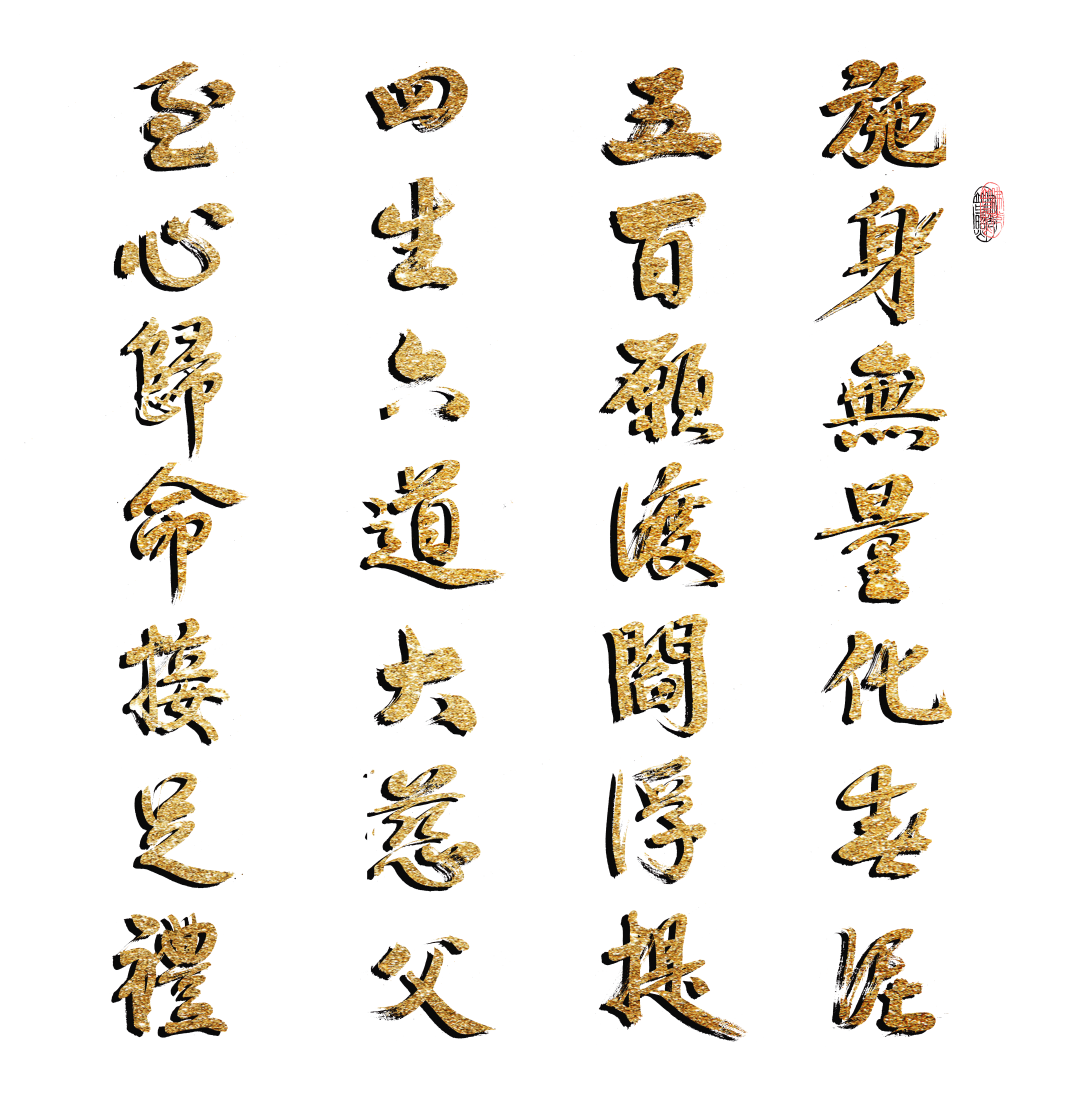 施身無量化春泥
五百願渡閻浮提
四生六道大慈父
至心歸命接足禮